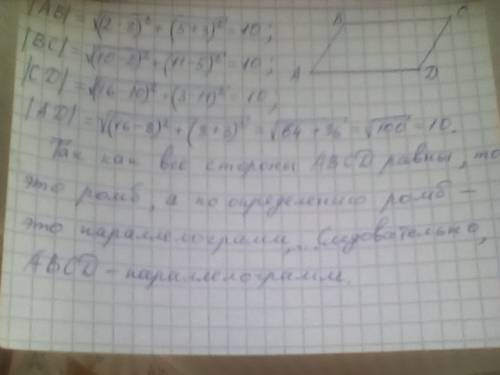 |AB| = √(2-8)² + (5+3)² = 10;
|BC| = √(10-2)² + (11-5)² = 10;
|CD| = √(16-10)² + (3-11)² = 10;
|AD| = √(16-8)² + (3+3)² = √64 + 36 = √100 = 10.
Так как все стороны ABCD равны, то
это ромб, а по определению ромб -
это параллелограмм. Следовательно,
ABCD - параллелограмм.
B
C
A
D